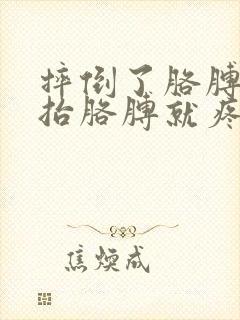 摔倒了胳膊
抬胳膊就疼
焦焕成